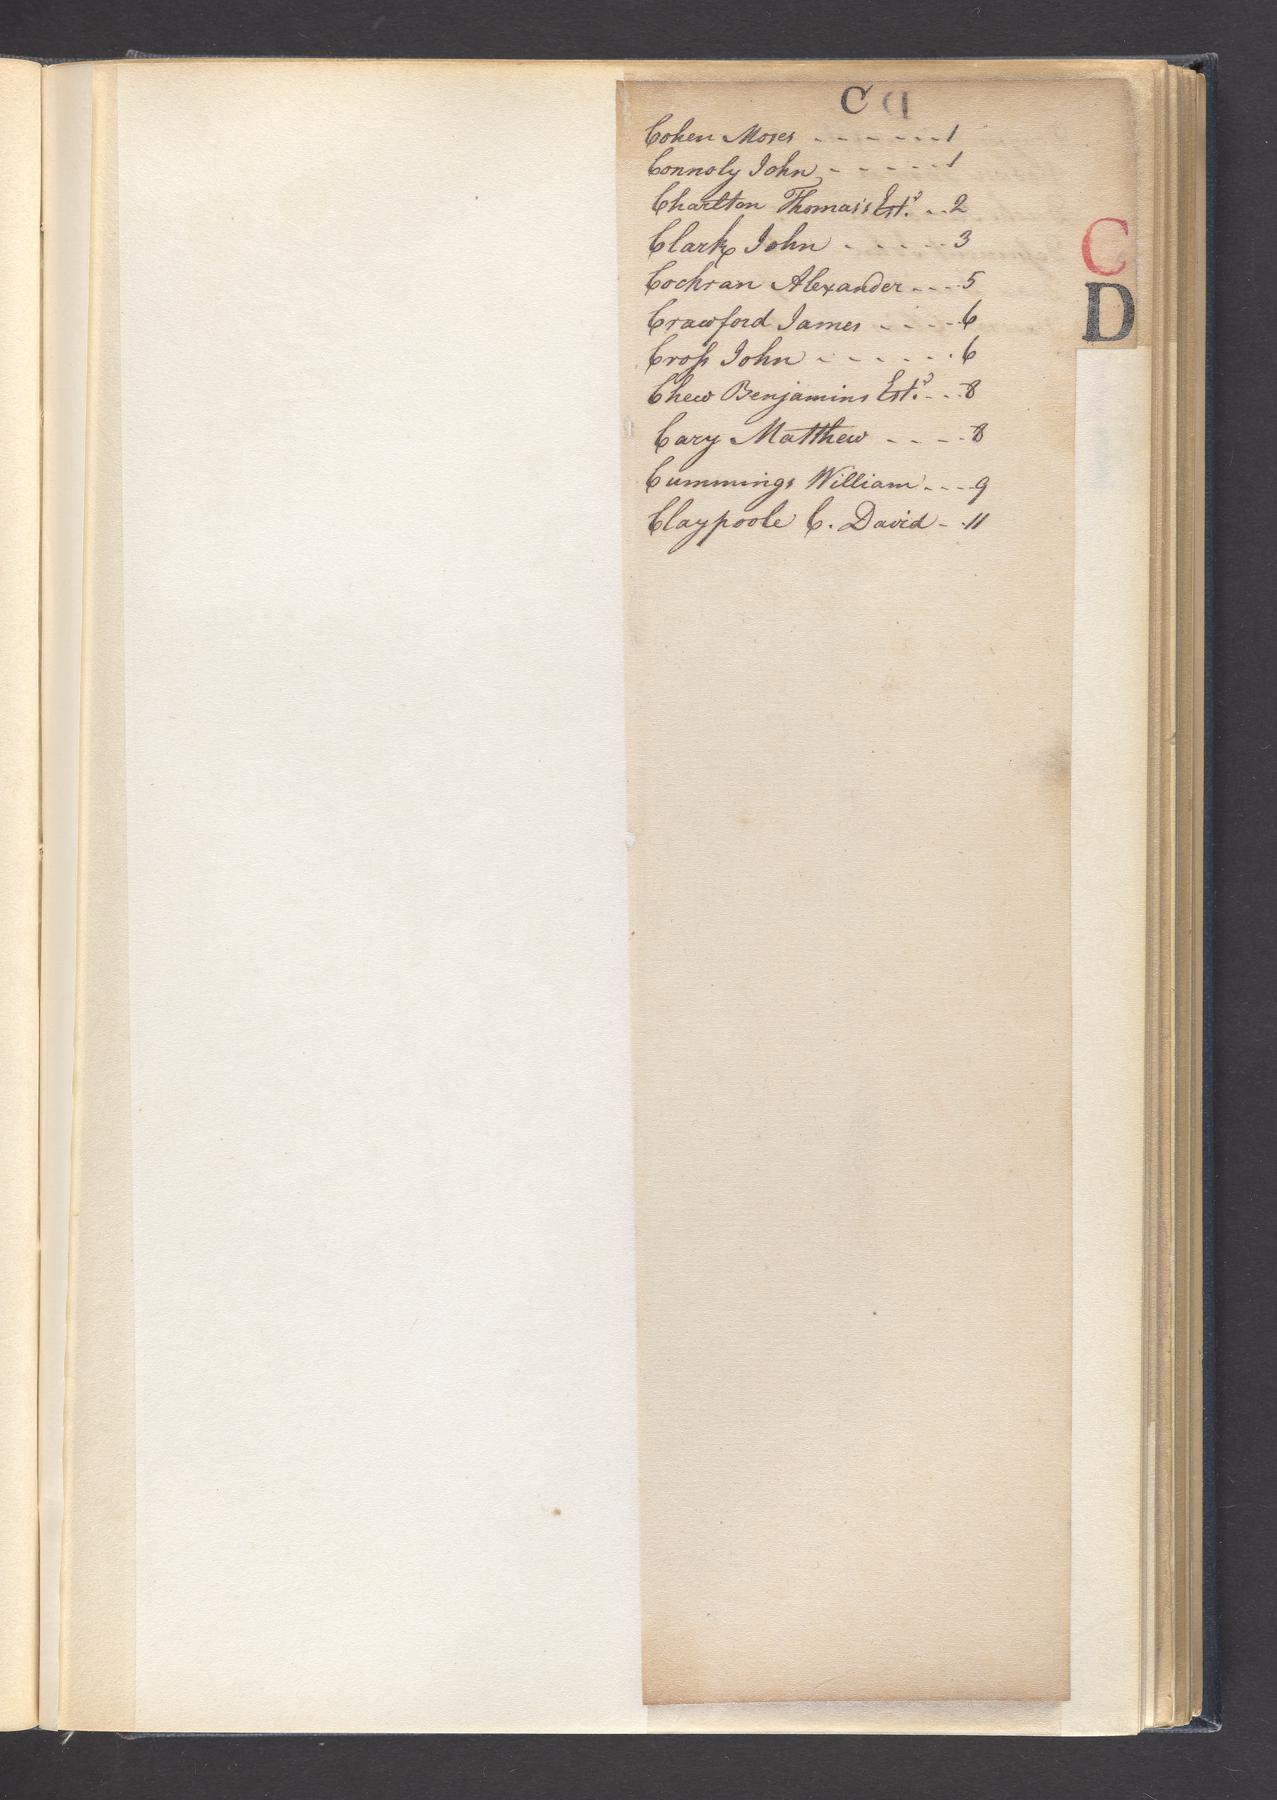 C D
Cohen Moses - - - - - - - 1
Connoly John - - - - - - 1
Charlton Thomas's Est.s - - 2
Clark John - - - - - 3
Cochran Alexander - - - - 5
Crawford James - - - - - 6
Croſs John - - - - - - - 6
Chew Benjamins Est.s - - - 8
Cary Matthew - - - - - 8
Cummings William - - - - 9
Claypoole C. David - - 11
C
D